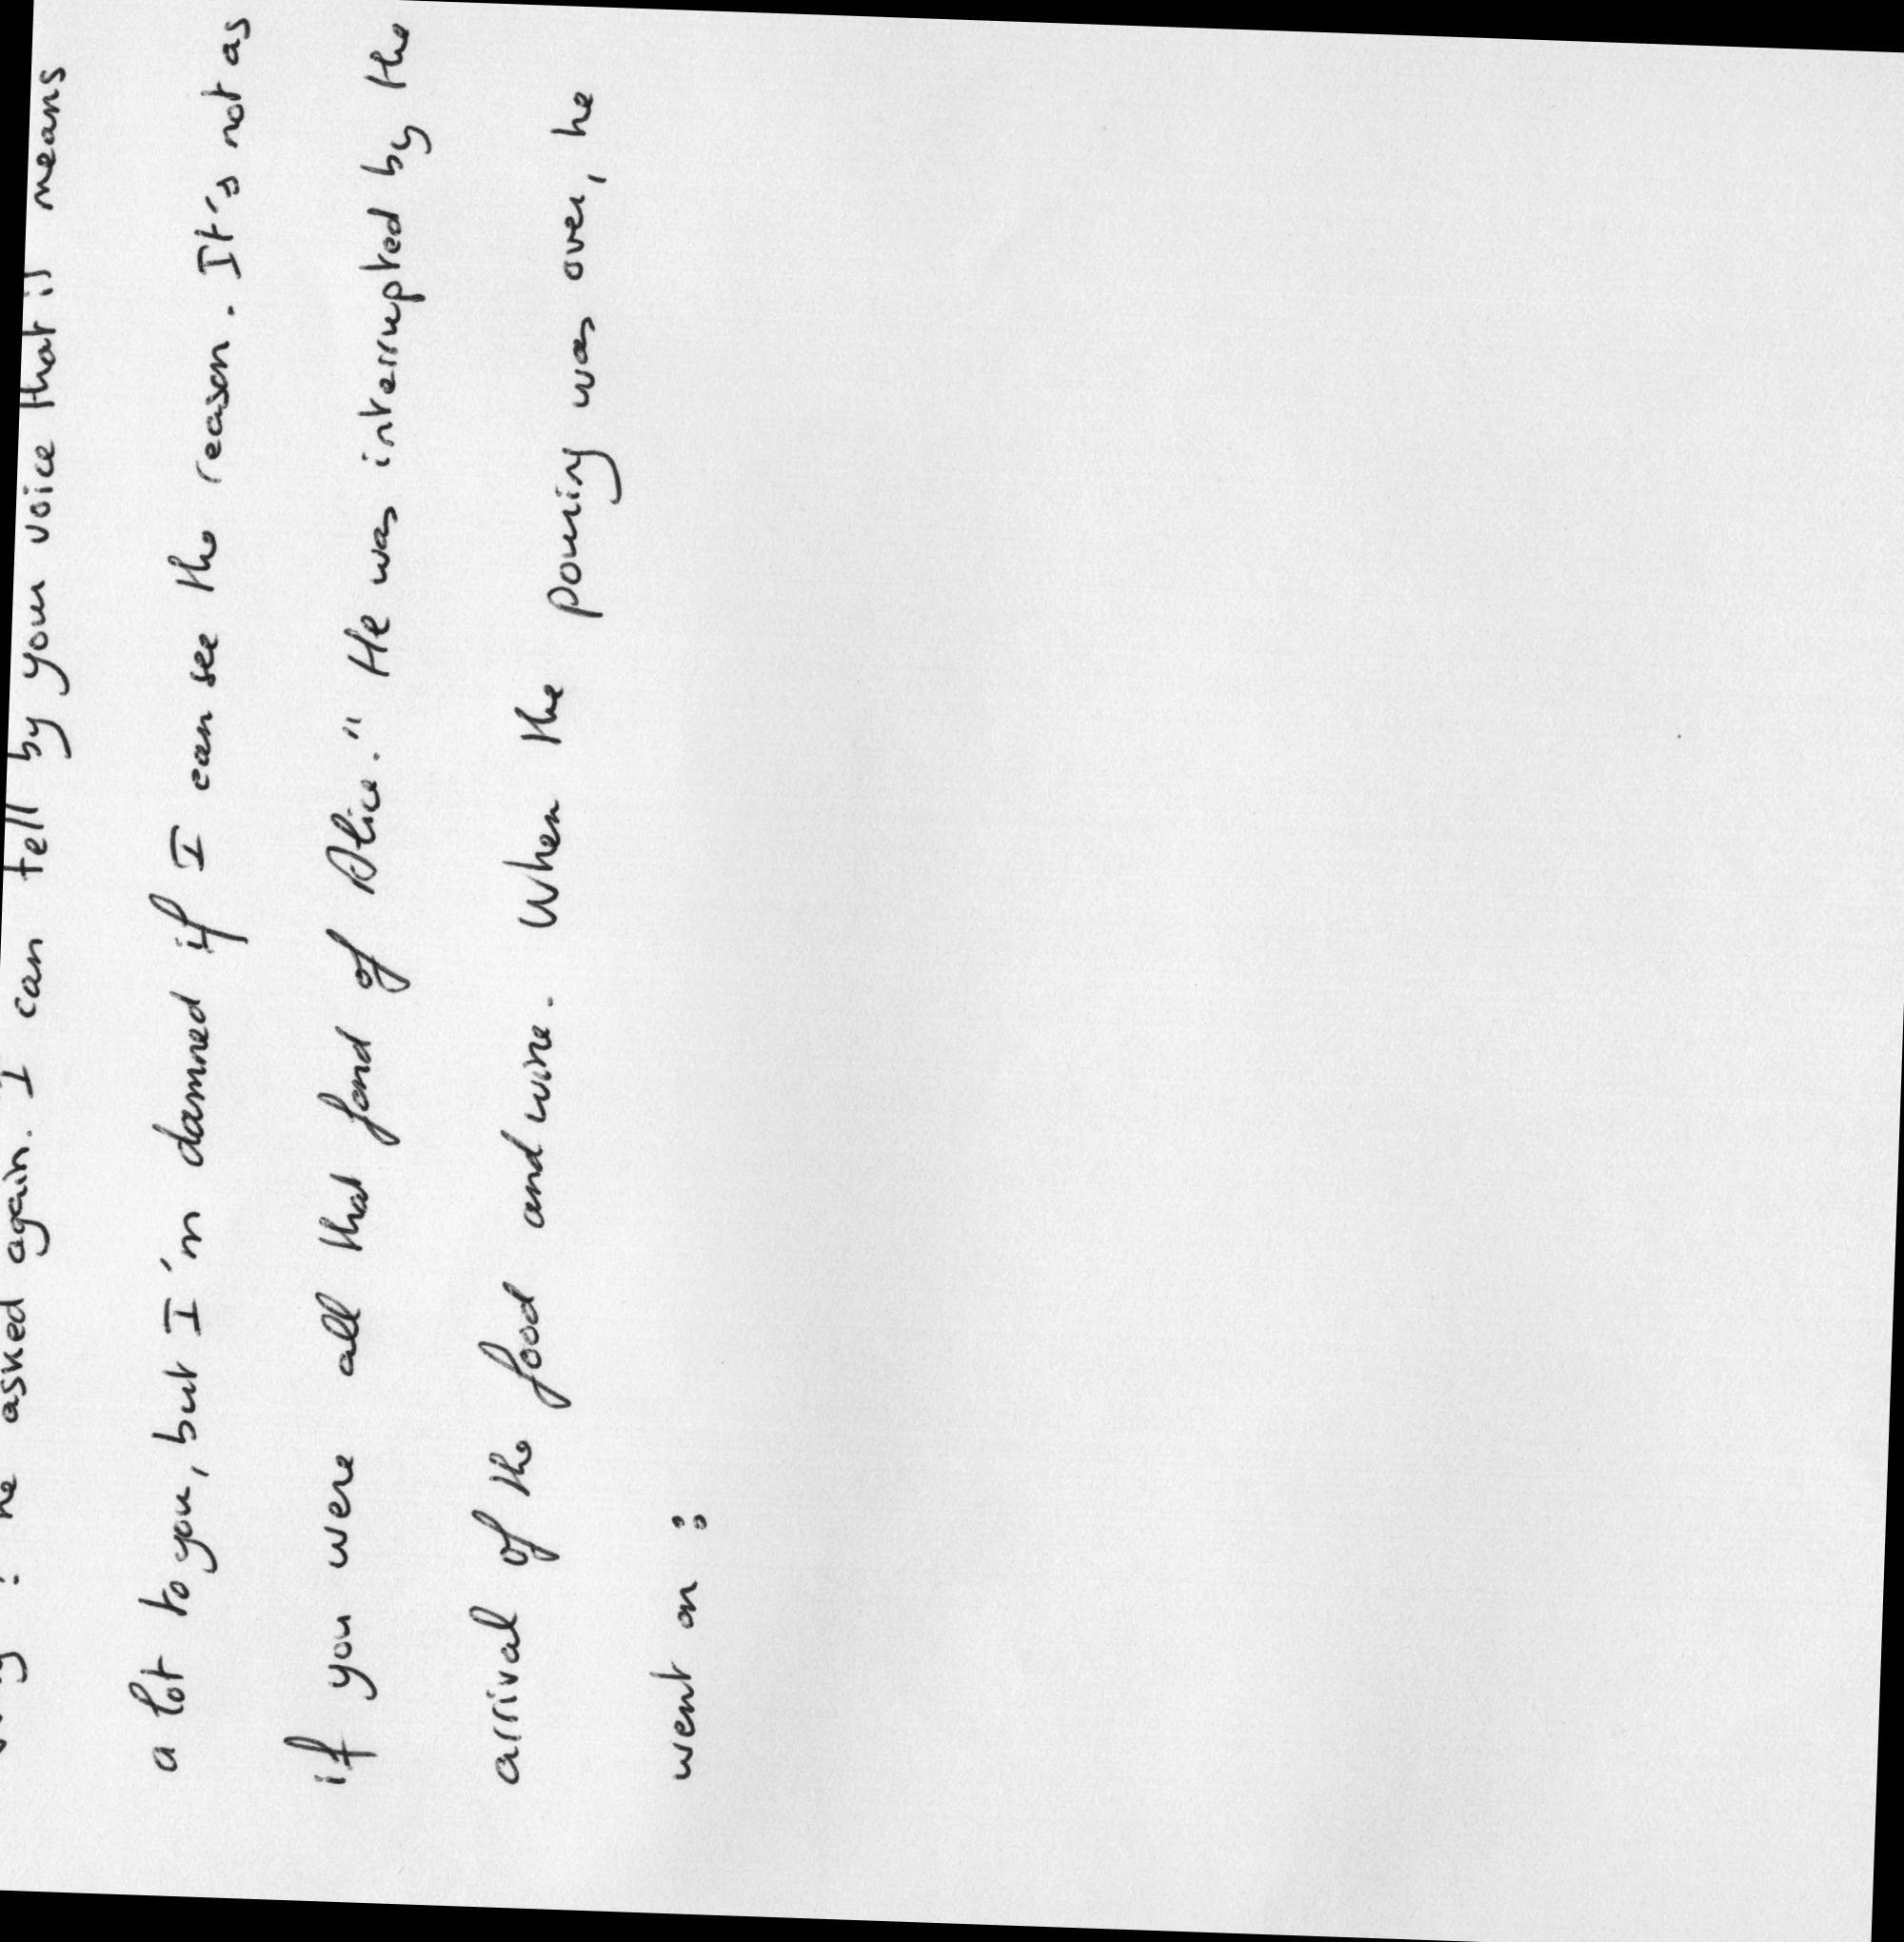 he asked again. I can tell by your voice that it means
a lot to you, but I'm damned if I can see the reason. It's not as
if you were all that fond of Alice." He was interrupted by the
arrival of the food and wine. When the pouring was over, he
went on :